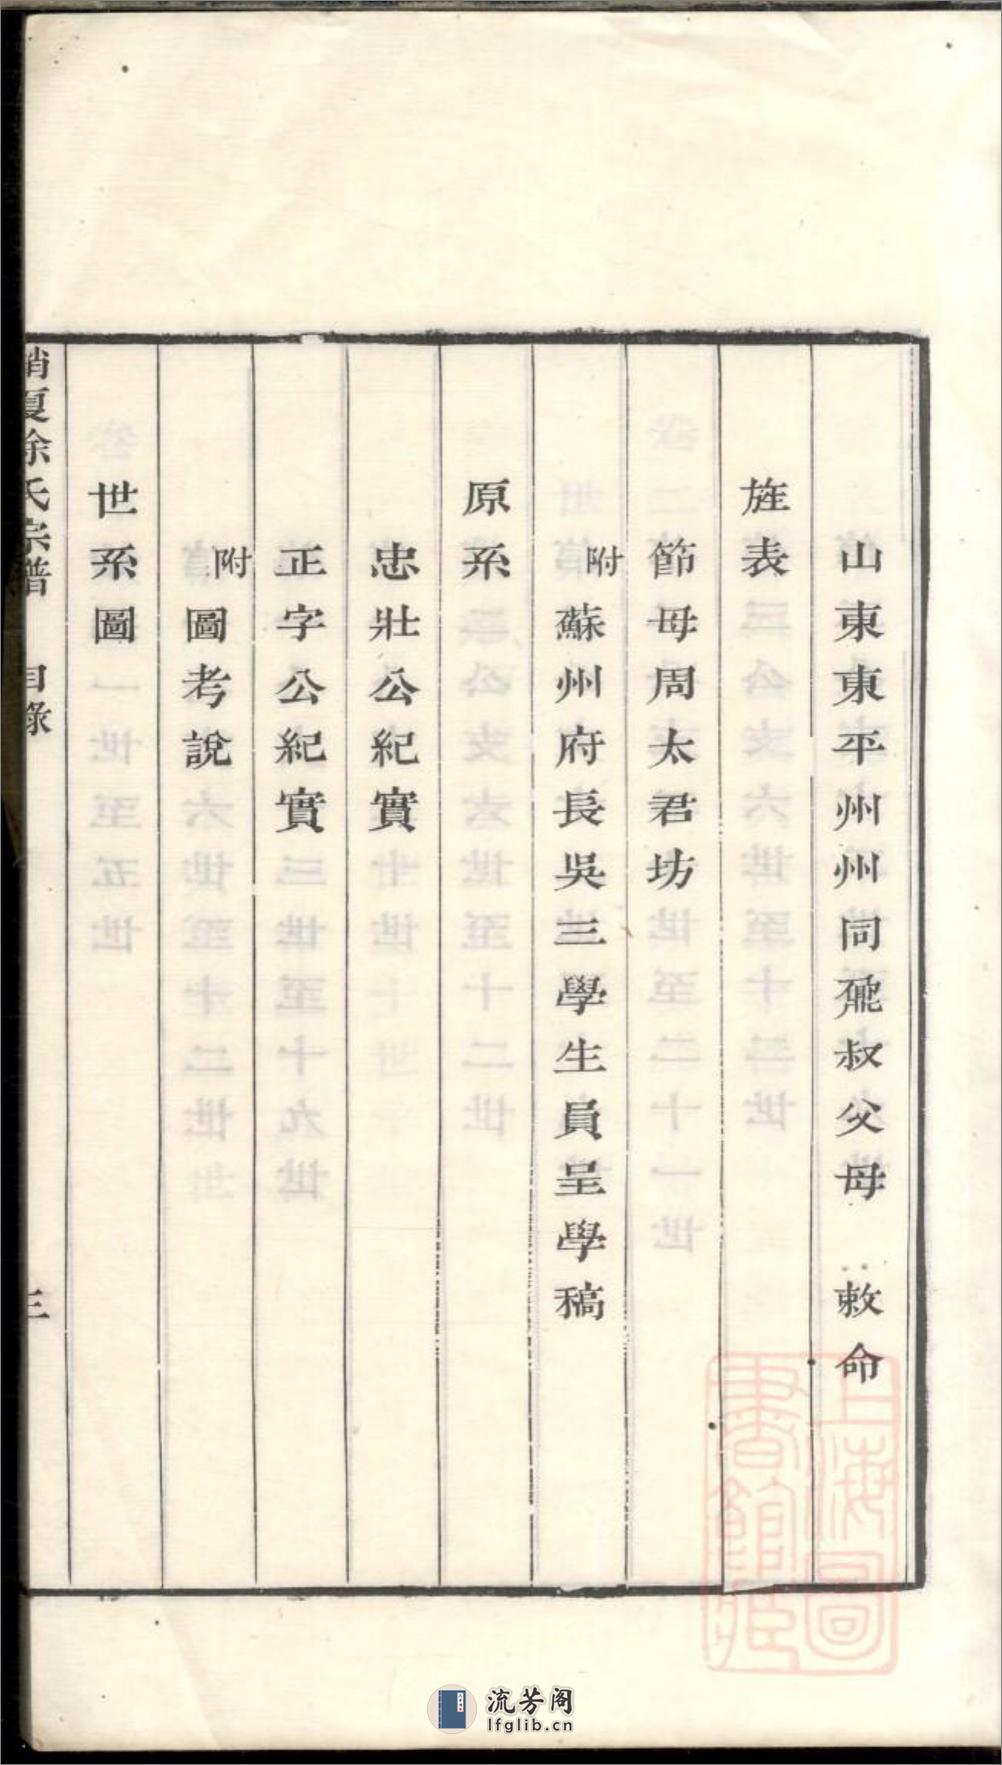 山東東平州州同貤叔父母　敕命
旌表
節母周太君坊
附蘇州府長吳三學生員呈學稿
原系
忠壯公紀實
正字公紀實
附圖考說
世系圖
夏徐氏宗譜　目錄　三
上海圖書館藏
流芳阁
lfglib.cn